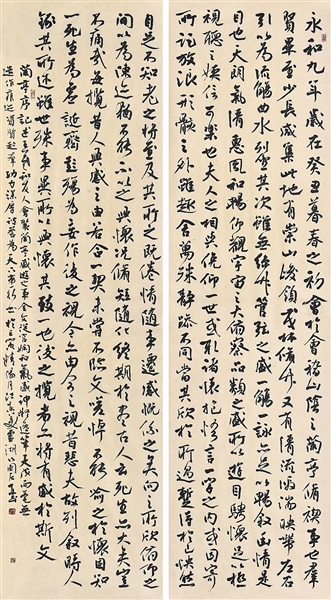 永和九年歲在癸丑暮春之初會於會稽山陰之蘭亭修禊事也群
賢畢至少長咸集此地有崇山峻嶺茂林修竹又有清流激湍映帶左右
引以為流觴曲水列坐其次雖無絲竹管弦之盛一觴一詠亦足以暢敘幽情是
日也天朗氣清惠風和暢仰觀宇宙之大俯察品類之盛所以遊目騁懷足以極
視聽之娛信可樂也夫人之相與俯仰一世或取諸懷抱悟言一室之內或因寄
所託放浪形骸之外雖趣舍萬殊靜躁不同當其欣於所遇暫得於己快然
自足不知老之將至及其所之既倦情隨事遷感慨係之矣向之所欣俯仰之
間以為陳迹猶不能不以之興懷況修短隨化終期於盡古人云死生亦大矣豈
不痛哉每攬昔人興感之由若合一契未嘗不臨文嗟悼不能喻之於懷固知
一死生為虛誕齊彭殤為妄作後之視今亦由今之視昔悲夫故列敘時人
錄其所述雖世殊事異所以興懷其致一也後之攬者亦將有感於斯文
蘭亭序記述